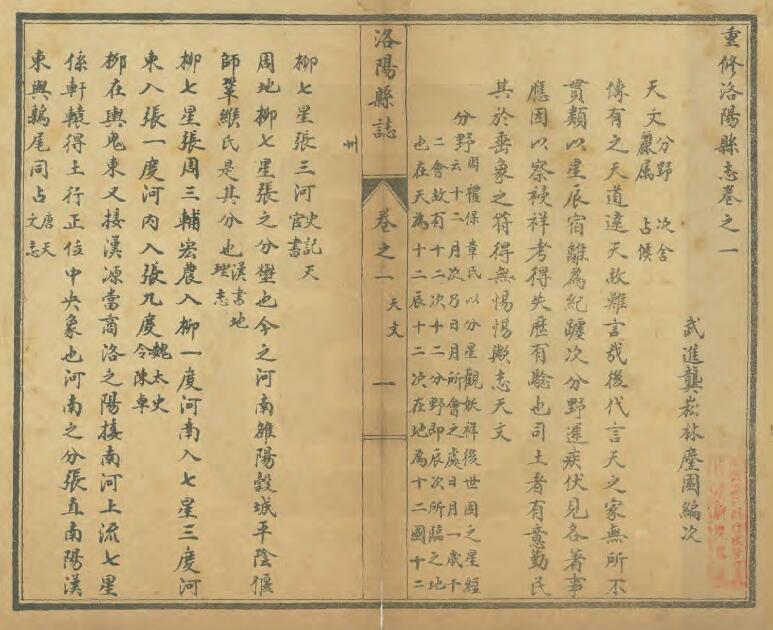 重修洛陽縣志卷之一
武進龔崧林麈園編次
天文 分野 次舍
麗属 占候
傳有之天道遠天故難言哉後代言天之家無所不
貫類以星辰宿離為紀躔次分野遲疾伏見各著事
應因以察祲祥考得失歷有驗也司土者有意勤民
其於垂象之符得無惕惕歟志天文
分野
周禮保章氏以分星觀妖祥後世因之星經
云十二月次乃日月所會之處日月一歲十
二會故有十二次十二分野即辰次所臨之地
也在天為十二辰十二次在地為十二國十二
州
洛陽縣誌
卷之一
天文
一
柳七星張三河
史記天
官書
周地柳七星張之分壄也今之河南雒陽穀城平陰偃
師鞏緱氏是其分也
漢書地
理志
柳七星張周三輔宏農入柳一度河南入七星三度河
東入張一度河內入張九度
魏太史
令陳卓
柳在輿鬼東又接漢源當商洛之陽接南河上流七星
係軒轅得土行正位中央象也河南之分張直南陽漢
東與鶉尾同占
唐天
文志